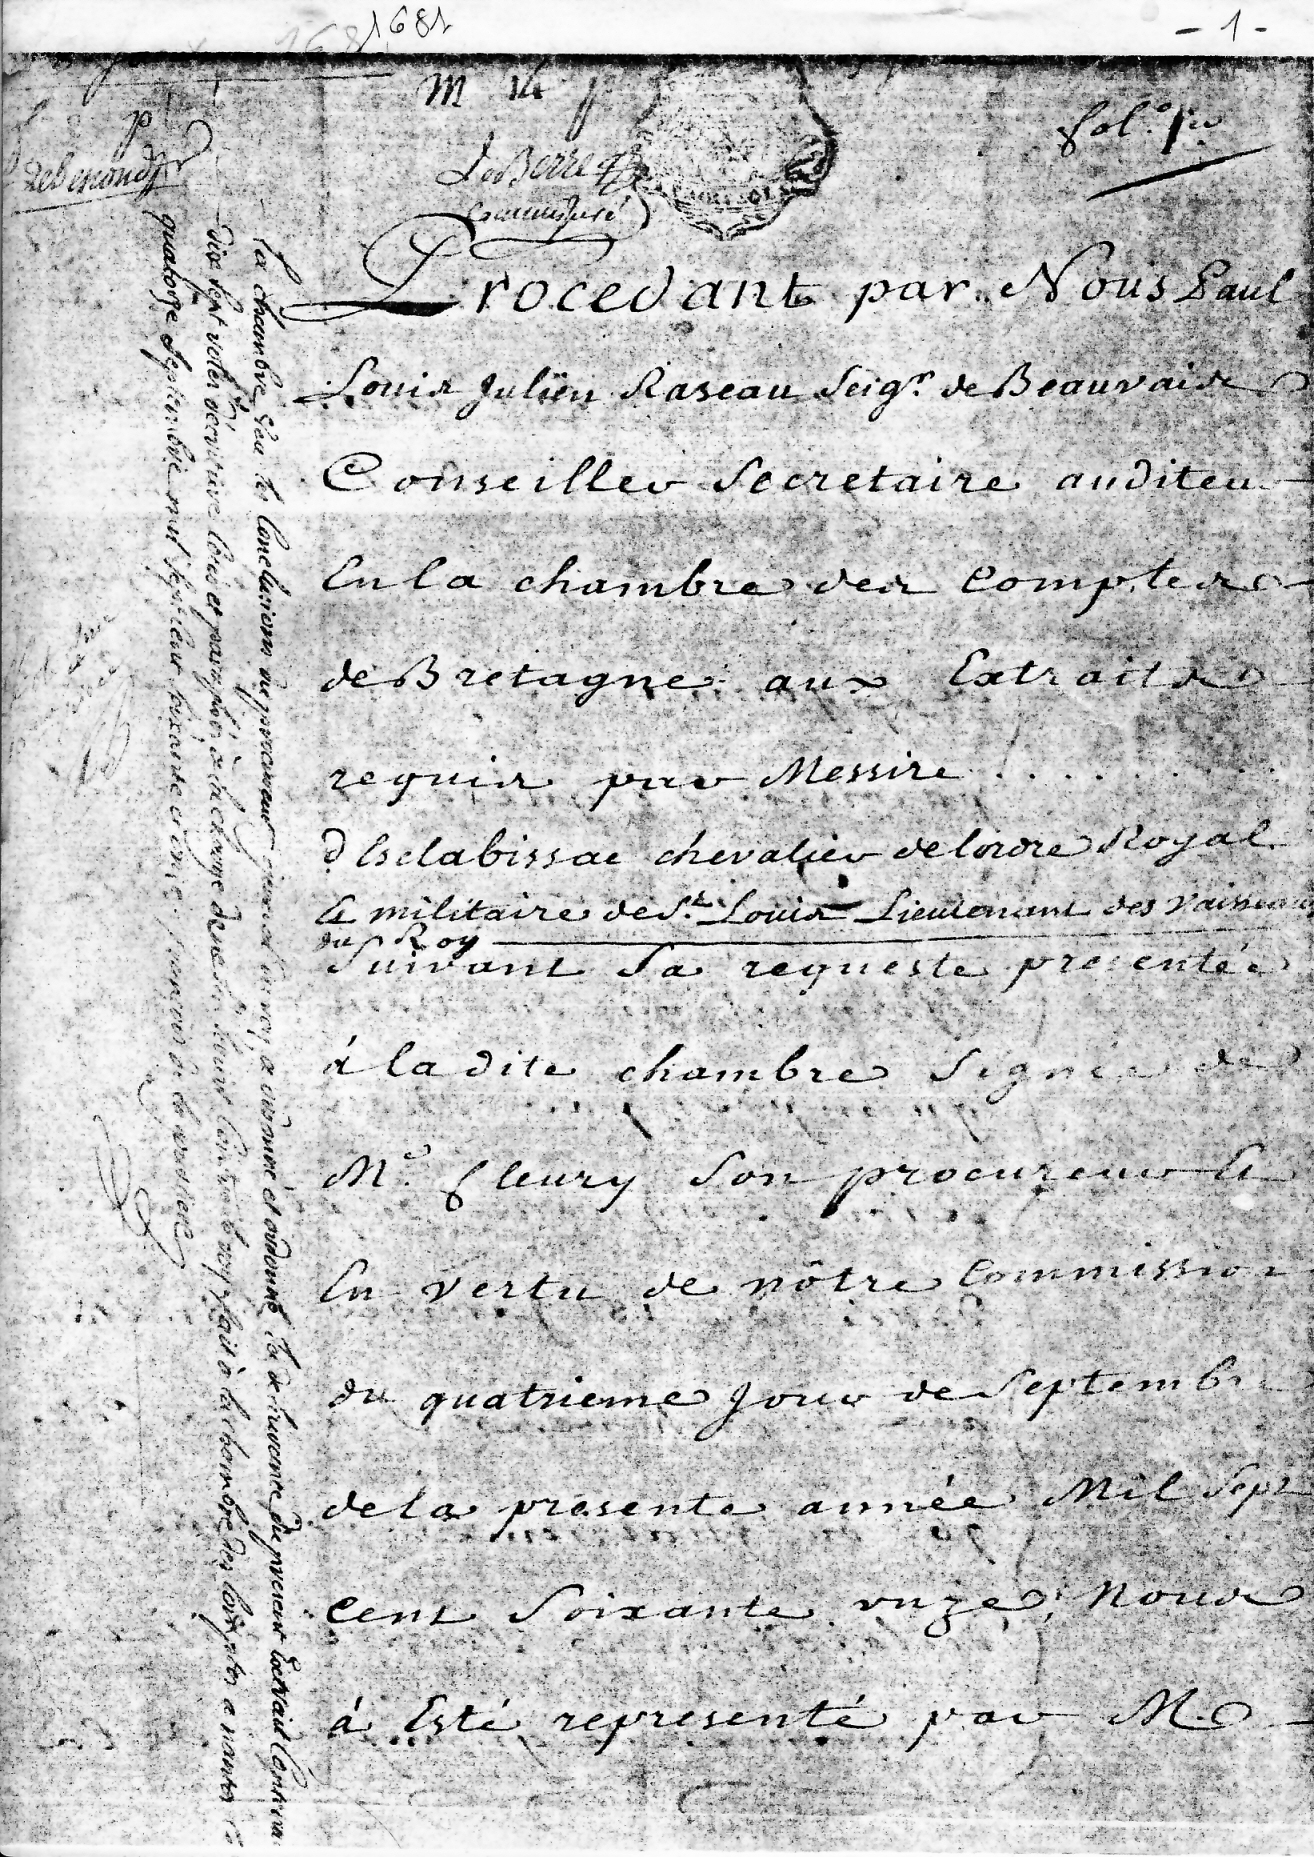 1681
- 1 -
1681
fol.o 1er
Procedant par Nous Paul
Louis Julien Raseau Seigr. de Beauvais
Conseiller Secretaire auditeur
En la chambre des Comptes
de Bretagne aux Extraits
requis par Messire . . . . . . .
d'Esclabissac chevalier de lordre Royal
& militaire de St. Louis Lieutenant des Vaisseaux
du Roy
Suivant Sa requeste presentée
á la dite chambre Signée de
Me. fleury Son procureur &
En Vertu de nôtre Commission
du quatrieme Jour de Septembre
de la presente année Mil Sept
cent Soixante onze, Nous
á Esté representé par M.
La chambre, Veu les Conclusions du procureur general du roy, a ordonné et ordonne la delivrance du present Extrait Contenant
dix Sept rolles d'ecriture et paraphé à la charge de ne Servir Contre le roy, fait à la chambre des Comptes a nantes le
quatorze Septembre mil Sept cent soixante et onze.